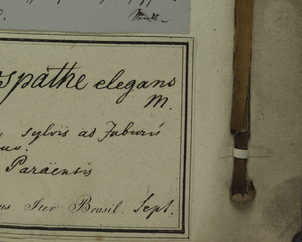 spathe elegans
M.
sylvis ad Taburú
Paraënsis
us Iter Brasil. Sept.